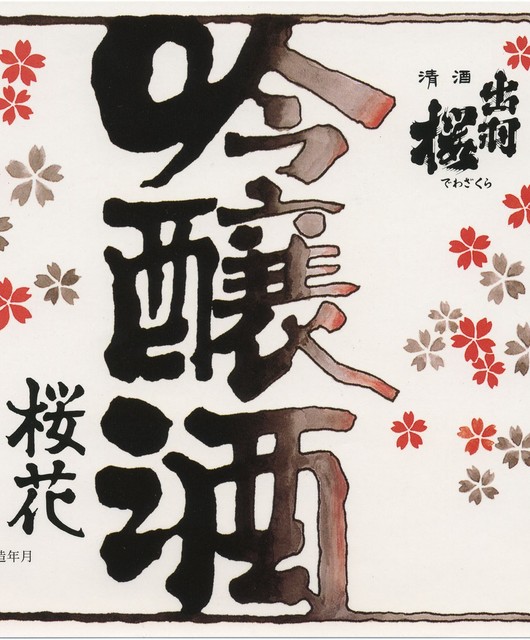 清酒
出羽
桜
でわざくら
吟醸酒
桜花
造年月